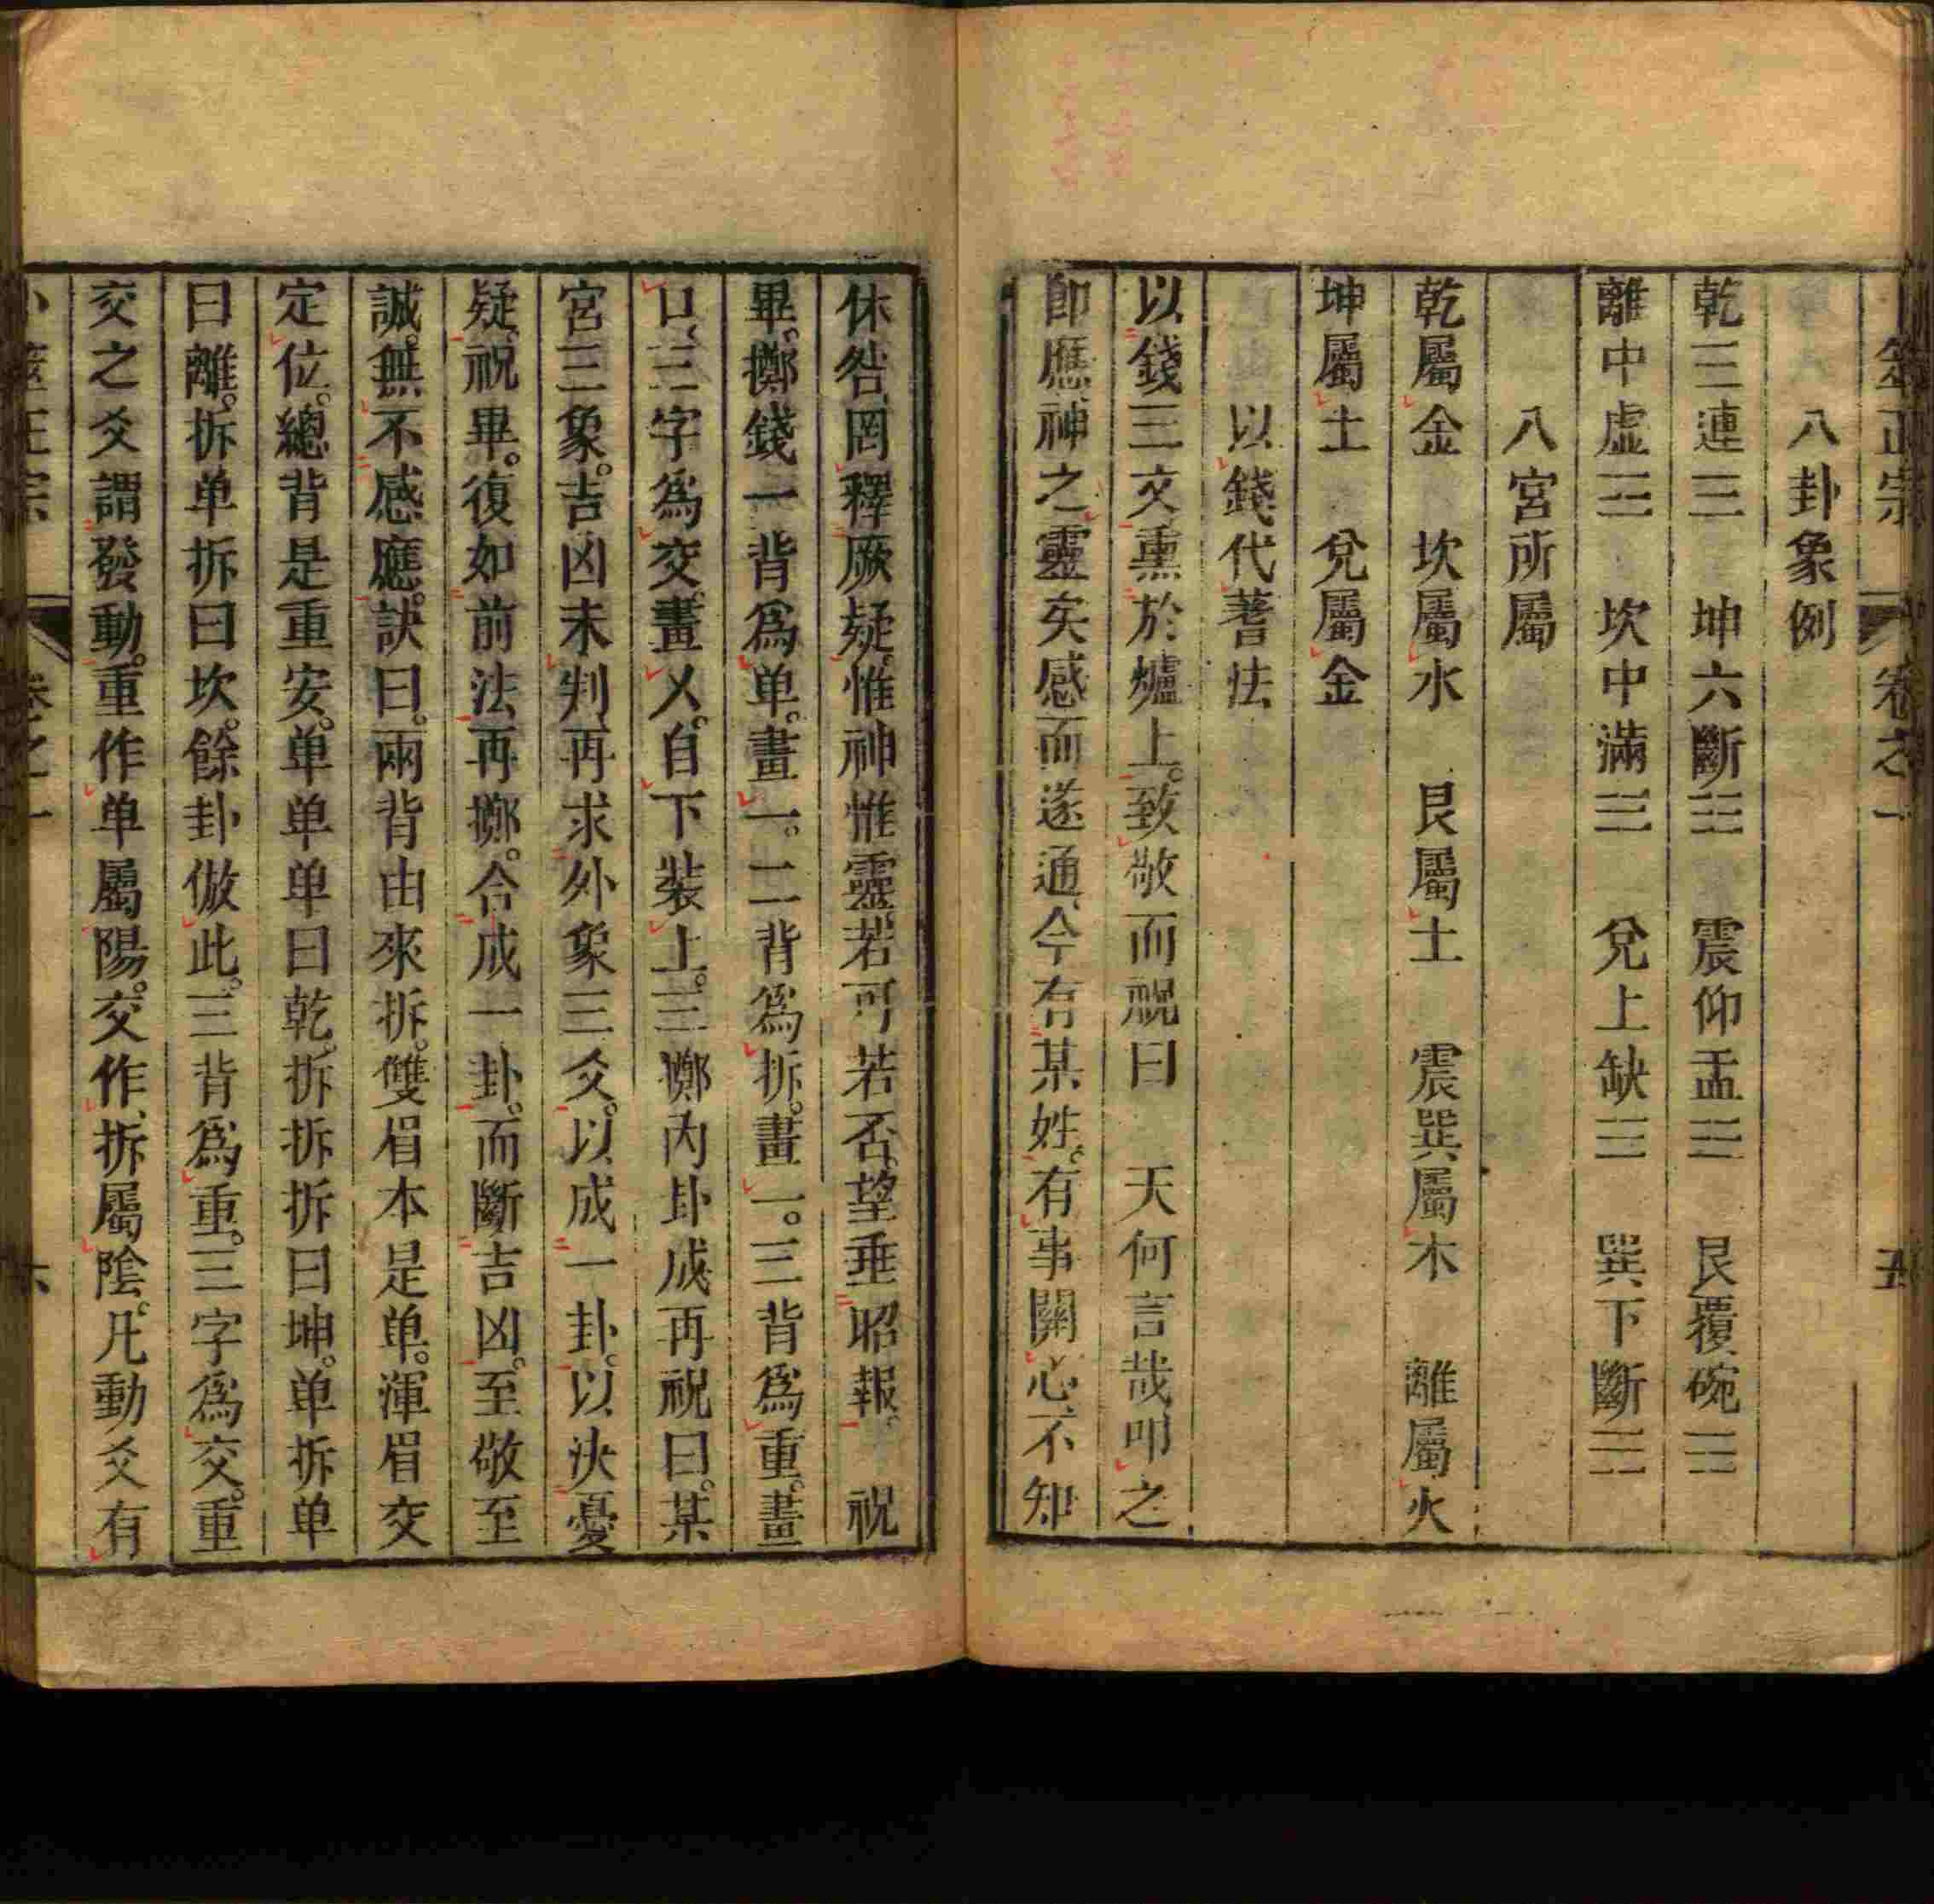 筮正宗 卷之一 五
八卦象例
乾三連☰ 坤六斷☷ 震仰盂☳ 艮覆碗☶
離中虛☲ 坎中滿☵ 兌上缺☱ 巽下斷☴
八宮所屬
乾屬金 坎屬水 艮屬土 震巽屬木 離屬火
坤屬土 兌屬金
以錢代蓍法
以錢三文熏於爐上。致敬而祝曰 天何言哉叩之
即應、神之靈矣感而遂通、今有某姓。有事關心、不知
休咎、罔釋厥疑。惟神惟靈。若可若否。望垂昭報。 祝
畢。擲錢一背爲单。畫一。二背爲拆。畫--。三背爲重。畫
口、三字爲交。畫乂。自下裝上。三擲內卦成再祝曰。某
宮三象。吉凶未判、再求外象三爻。以成一卦。以決憂
疑。祝畢。復如前法、再擲。合成一卦。而斷吉凶。至敬至
誠。無不感應。訣曰。兩背由來拆。雙眉本是单。渾眉交
定位。總背是重安。单单单曰乾。拆拆拆曰坤。单拆单
曰離。拆单拆曰坎。餘卦倣此。三背爲重。三字爲交。重
交之爻謂發動。重作单屬陽。交作、拆屬陰。凡動爻有
卜筮正宗 卷之一 六